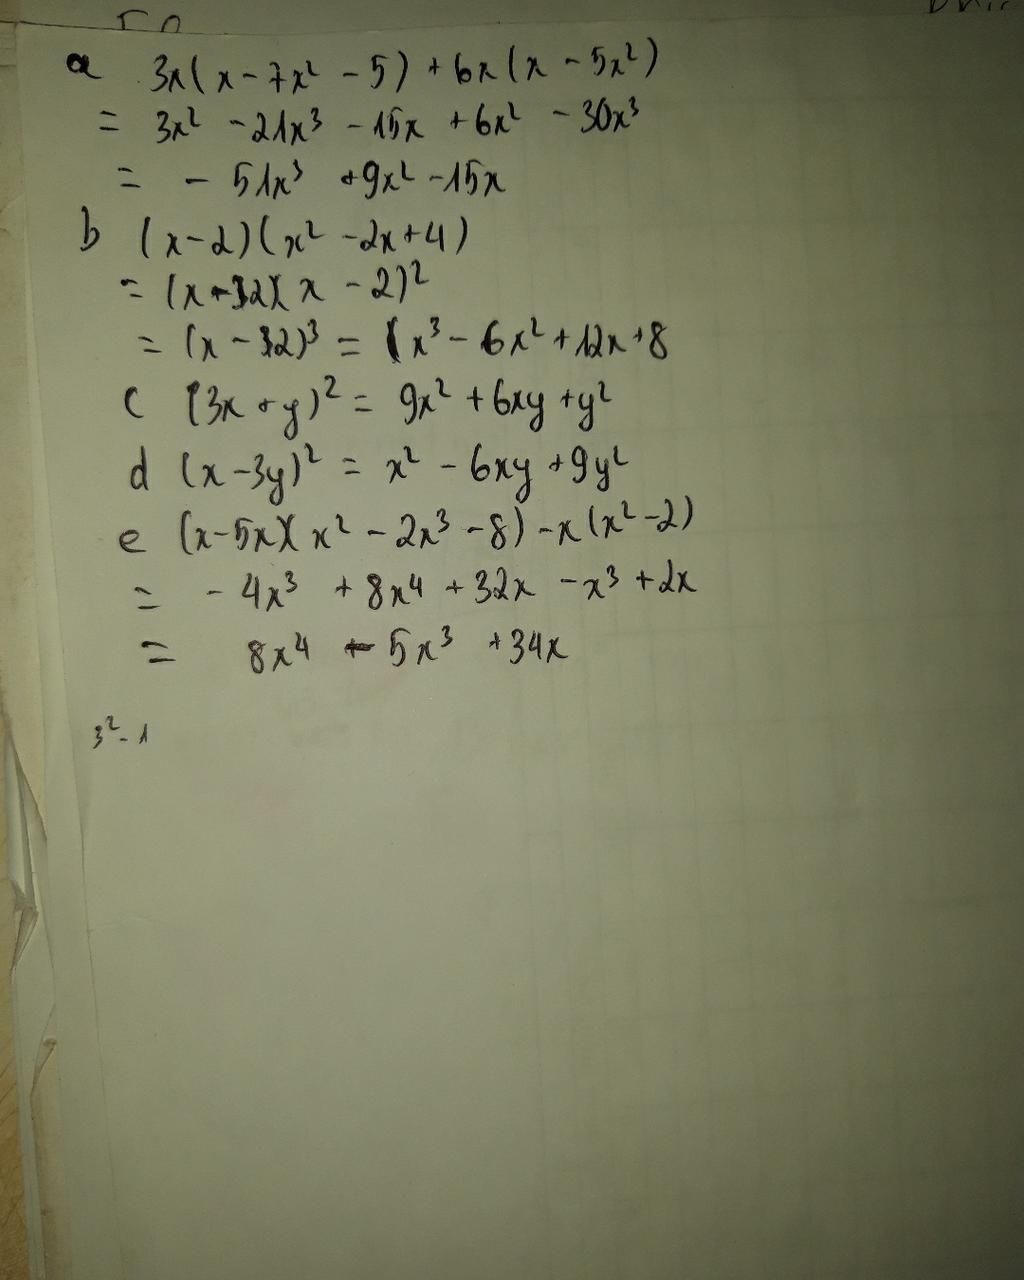 a 3x(x-7x² -5) +6x(x -5x²)
= 3x² -21x³ -15x +6x² -30x³
= - 51x³ +9x² -15x
b (x-2)(x² -2x+4)
= (x - 2)²
= = x³- 6x²+12x+8
c (3x +y)² = 9x² +6xy +y²
d (x-3y)² = x² -6xy +9y²
e (x-5x)(x² -2x³ -8) -x(x²-2)
= -4x³ +8x⁴ +32x -x³ +2x
= 8x⁴ - 5x³ +34x
3²-1